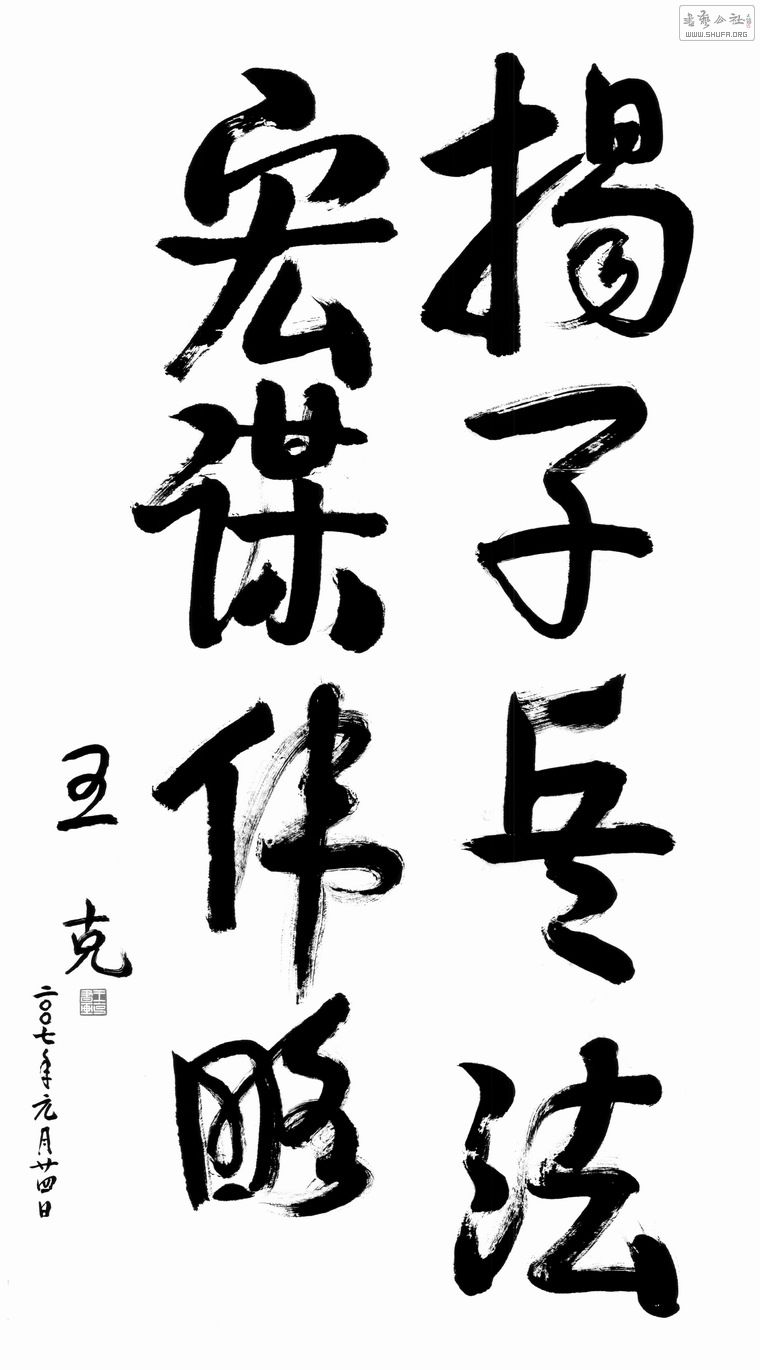 揭子兵法
宏谋伟略
王克
二〇〇七年元月廿四日
书艺公社
WWW.SHUFA.ORG